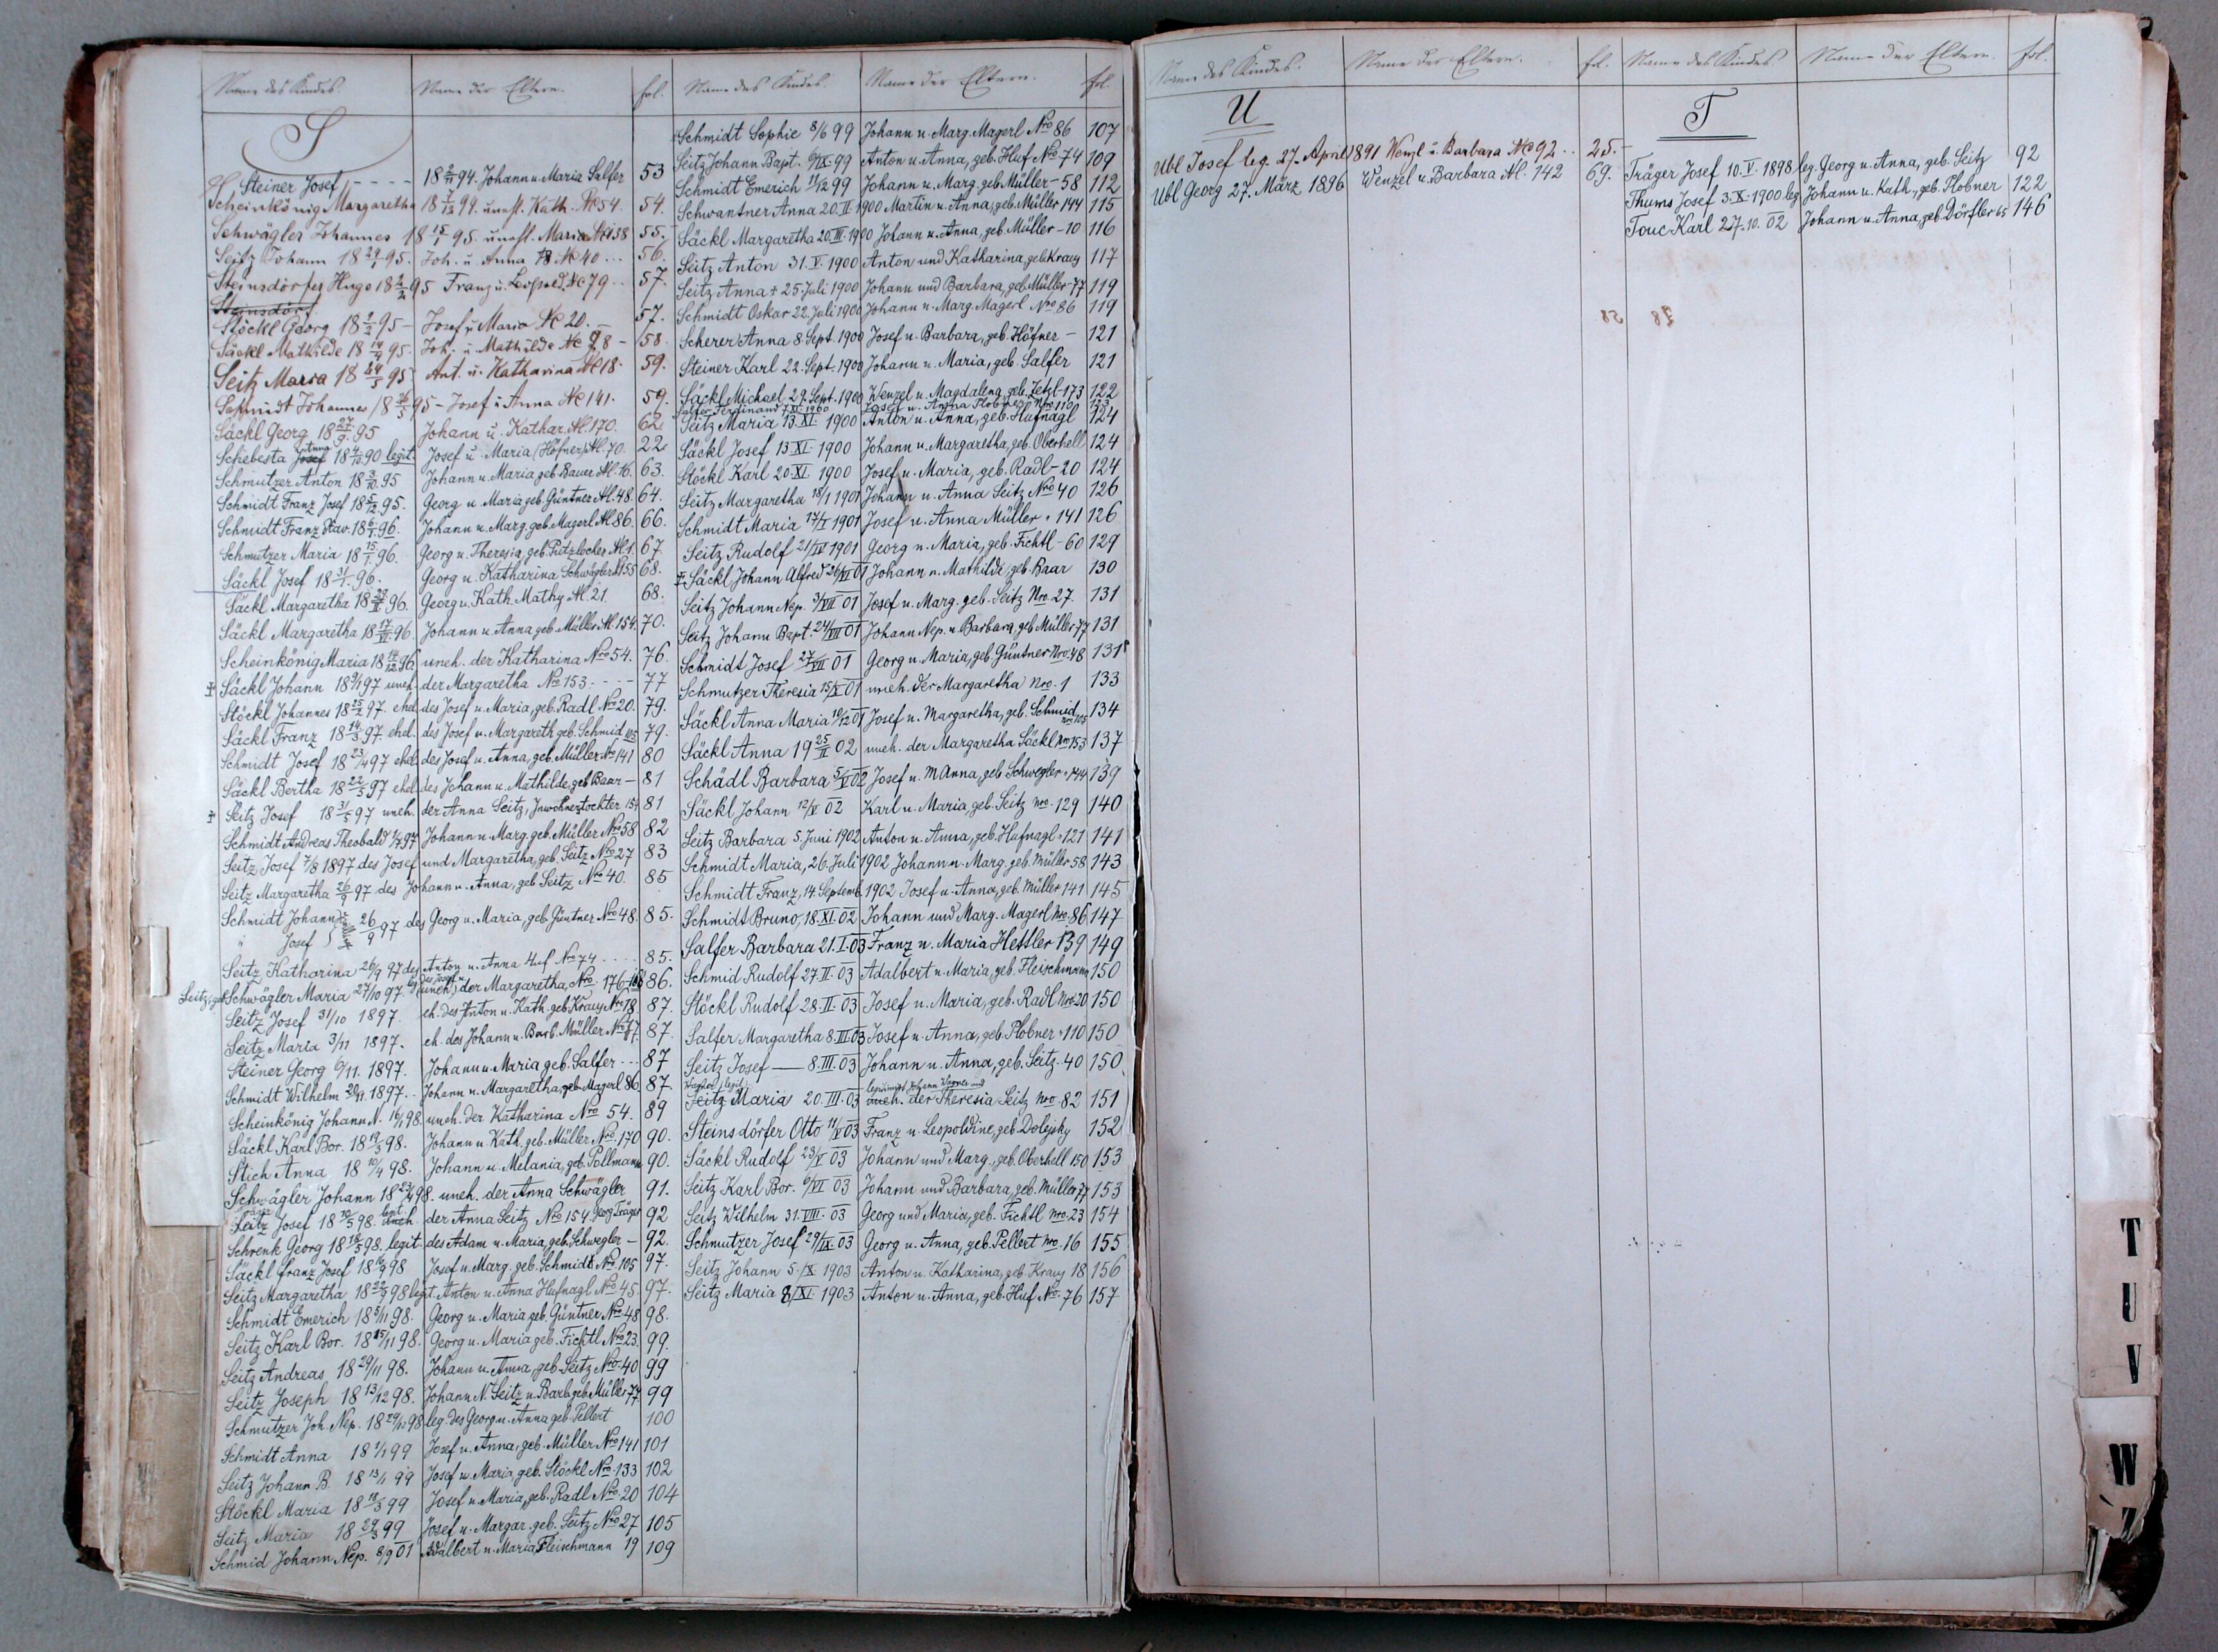 Name des Kindes. Name der Eltern. fol.
S
Steiner Josef 18 2/11 94. Johann u. Maria Salfer 53
Scheinkönig Margaretha 18 94. unehl. Kath. No 54. 54.
Schwägler Johannes 18 15/1 95. unehl. Maria No 138 55.
Seitz Johann 18 29/1 95. Joh. u. Anna No 40 56.
Steinsdörfer Hugo 18 95 Franz u. Leopold. No 79 57.
Steinsdörf
Stöckl Georg 18 95 Josef u. Maria No 20. 57.
Säckl Mathilde 18 95. Joh. u. Mathilde No 58.
Seitz Maria 18 95 Ant. u. Katharina No 18. 59.
Schmidt Johannes 18 95 - Josef u. Anna No 141. 59.
Säckl Georg 18 27/9 95 Johann u. Kathar. No 170. 62.
Schebesta Josef Anna 18 90 legit. Josef u. Maria (Höfner) No 70. 22
Schmutzer Anton 18 3/10 95 Johann u. Maria geb. Bauer No 16. 63.
Schmidt Franz Josef 18 5/12 95. Georg u. Maria geb. Güntner No 48. 64.
Schmidt Franz Xav. 18 6/1 96. Johann u. Marg. geb. Magerl No 86. 66.
Schmutzer Maria 18 15/1 96. Georg u. Theresia, geb. Putzlocher No 1. 67.
Säckl Josef 18 31/1 96. Georg u. Katharina Schwägler No 155 68.
Säckl Margaretha 18 96. Georg u. Kath. Mathy No 21. 68.
Säckl Margaretha 18 17/IV 96. Johann u. Anna geb. Müller No 154. 70.
Scheinkönig Maria 18 96 uneh. der Katharina Nro 54. 76.
Säckl Johann 18 97 uneh. der Margaretha No 153 77
Stöckl Johannes 18 25/2 97. ehel. des Josef u. Maria, geb. Radl No 20. 79.
Säckl Franz 18 14/3 97 ehel. des Josef u. Margareth geb. Schmid 105 79.
Schmidt Josef 18 23/4 97 ehel. des Josef u. Anna, geb. Müller No 141 80
Säckl Bertha 18 22/5 97 ehel. des Johann u. Mathilde, geb. Baar - 81
Seitz Josef 18 31/5 97 uneh. der Anna Seitz, Inwohnerstochter 154 81
Schmidt Andreas Theobald 97 Johann u. Marg. geb. Müller Nro 58 82
Seitz Josef 7/8 1897 des Josef und Margaretha, geb. Seitz Nro 27 83
Seitz Margaretha 26/9 97 des Johann u. Anna, geb Seitz No 40. 85
Schmidt Johann 26/9 97 des Georg u. Maria, geb. Güntner Nro 48. 85.
" Josef
Seitz Katharina 26/9 97 des Anton u. Anna Huf No 74 85.
Seitz, Schwägler Maria 27/10 97. (uneh.) der Margaretha, Nro 176 86.
Seitz Josef 31/10 1897. eh. des Anton u. Kath. geb. Kraus Nro 18. 87.
Seitz Maria 3/11 1897. eh. des Johann u. Barb. Müller No 77. 87.
Steiner Georg 6/11. 1897. Johann u. Maria geb. Salfer 87
Schmidt Wilhelm 20/11. 1897. Johann u. Margaretha, geb. Magerl 86. 87.
Scheinkönig Johann N. 16/1 98. uneh. der Katharina Nro 54. 89
Säckl Karl Bor. 18 19/3 98. Johann u. Kath. geb. Müller Nro 170 90.
Stich Anna 18 10/4 98. Johann u. Melania, geb. Pollmann 90.
Schwägler Johann 18 23/4 98. uneh. der Anna Schwägler 91.
Seitz Josef 18 10/5 98. uneh. legit. der Anna Seitz No 154 Georg Träger 92
Schrenk Georg 18 16/5 98. legit. des Adam u. Maria, geb. Schwegler - 92.
Säckl Franz Josef 18 98 Josef u. Marg. geb. Schmidt No 105 97.
Seitz Margaretha 18 22/9 98 legit Anton u. Anna Hufnagl Nro 45. 97.
Schmidt Emerich 18 5/11 98. Georg u. Maria geb. Güntner Nro 48 98.
Seitz Karl Bor. 18 15/11 98. Georg u. Maria geb. Fichtl Nro 23. 99.
Seitz Andreas 18 29/11 98. Johann u. Anna, geb. Seitz Nro 40 99
Seitz Joseph 18 13/12 98. Johann N. Seitz u. Barb. geb. Müller 77. 99
Schmutzer Joh. Nep. 18 29/12 98 leg. des Georg u. Anna geb. Pellert 100
Schmidt Anna 18 1/1 99 Josef u. Anna, geb. Müller Nro 141 101
Seitz Johann B. 18 13/1 99 Josef u. Maria, geb. Stöckl No 133 102
Stöckl Maria 18 18/3 99 Josef u. Maria, geb. Radl No 20 104
Seitz Maria 18 29/3 99 Josef u. Margar. geb. Seitz Nro 27 105
Schmid Johann Nep. 8/9 01 Adalbert u. Maria Fleischmann 19 109
Name des Kindes. Name der Eltern. fol.
Schmidt Sophie 8/6 99 Johann u. Marg. Magerl Nro 86 107
Seitz Johann Bapt. 6/IX. 99 Anton u. Anna, geb. Huf No 74 109
Schmidt Emerich 11/12 99 Johann u. Marg. geb. Müller - 58 112
Schwantner Anna 20. II. 1900 Martin u. Anna, geb. Müller 144 115
Säckl Margaretha 20. III. 1900 Johann u. Anna, geb. Müller - 10 116
Seitz Anton 31. V. 1900 Anton und Katharina, geb. Kraus 117
Seitz Anna + 25. Juli 1900 Johann und Barbara, geb. Müller - 77 119
Schmidt Oskar 22. Juli 1900 Johann u. Marg. Magerl Nro 86 119
Scherer Anna 8. Sept. 1900 Josef u. Barbara, geb. Höfner - 121
Steiner Karl 22. Sept. 1900 Johann u. Maria, geb. Salfer 121
Säckl Michael 29. Sept. 1900 Wenzel u. Magdalena, geb. Zetzl - 173 122
Salfer Ferdinand 7. XI. 1900 Josef u. Anna Plobner Nro 110 123
Seitz Maria 13. XI. 1900 Anton u. Anna, geb. Hufnagl 124
Säckl Josef 13. XI. 1900 Johann u. Margaretha, geb. Oberhell 124
Stöckl Karl 20. XI. 1900 Josef u. Maria, geb. Radl - 20 124
Seitz Margaretha 18/1 1901 Johann u. Anna Seitz Nro 40 126
Schmidt Maria 17/I 1901 Josef u. Anna Müller " 141 126
Seitz Rudolf 21/IV 1901 Georg u. Maria, geb. Fichtl - 60 129
Säckl Johann Alfred 26/VI 01 Johann u. Mathilde, geb. Baar 130
Seitz Johann Nep. 3/VII 01 Josef u. Marg. geb. Seitz Nro 27. 131
Seitz Johann Bapt. 24/VII 01 Johann Nep. u. Barbara, geb. Müller 77 131
Schmidt Josef 27/VII 01 Georg u. Maria, geb. Güntner Nro. 48 131
Schmutzer Theresia 15/X 01 uneh. der Margaretha Nro. 1 133
Säckl Anna Maria 10/12 01 Josef u. Margaretha, geb. Schmid Nro 105 134
Säckl Anna 19 25/II 02 uneh. der Margaretha Säckl Nro 153 137
Schädl Barbara 5/V 02 Josef u. M Anna, geb. Schwegler " 144 139
Säckl Johann 12/V 02 Karl u. Maria, geb. Seitz Nro. 129 140
Seitz Barbara 5. Juni 1902 Anton u. Anna, geb. Hufnagl " 121 141
Schmidt Maria, 26. Juli 1902 Johann u. Marg. geb. Müller 58 143
Schmidt Franz, 14. Septemb. 1902 Josef u. Anna, geb. Müller 141 145
Schmidt Bruno, 18. XI. 02 Johann und Marg. Magerl Nro. 86 147
Salfer Barbara 21. I. 03 Franz u. Maria Hettler 139 149
Schmid Rudolf 27. II. 03 Adalbert u. Maria, geb. Fleischmann 150
Stöckl Rudolf 28. II. 03 Josef u. Maria, geb. Radl Nro 20 150
Salfer Margaretha 8. III. 03 Josef u. Anna, geb. Plobner " 110 150
Seitz Josef — 8. III. 03 Johann u. Anna, geb. Seitz. 40 150
Wagner (legit) legitimirt Johann Wagner und
Seitz Maria 20. III. 03 uneh. der Theresia Seitz Nro. 82 151
Steinsdörfer Otto 11/V 03 Franz u. Leopoldine, geb. Dolejsky 152
Säckl Rudolf 23/V 03 Johann und Marg., geb. Oberhell 150 153
Seitz Karl Bor. 6/VI 03 Johann und Barbara, geb. Müller 77 153
Seitz Wilhelm 31. VIII. 03 Georg und Maria, geb. Fichtl Nro. 23 154
Schmutzer Josef 29/IX 03 Georg u. Anna, geb. Pellert Nro. 16 155
Seitz Johann 5. /X 1903 Anton u. Katharina, geb. Kraus 18 156
Seitz Maria 8/XI. 1903 Anton u. Anna, geb. Huf Nro. 76 157
Name des Kindes. Name der Eltern. fol.
U
Ubl Josef leg. 27. April 1891 Wenzl u. Barbara No 92 25.
Ubl Georg 27. März 1896 Wenzel u. Barbara No. 142 69.
Name des Kindes Name der Eltern. fol.
T
Träger Josef 10. V. 1898 leg. Georg u. Anna, geb. Seitz 92
Thums Josef 3. X. 1900 leg. Johann u. Kath., geb. Plobner 122
Touc Karl 27. 10. 02 Johann u. Anna, geb. Dörfler 65 146
T
U
V
W